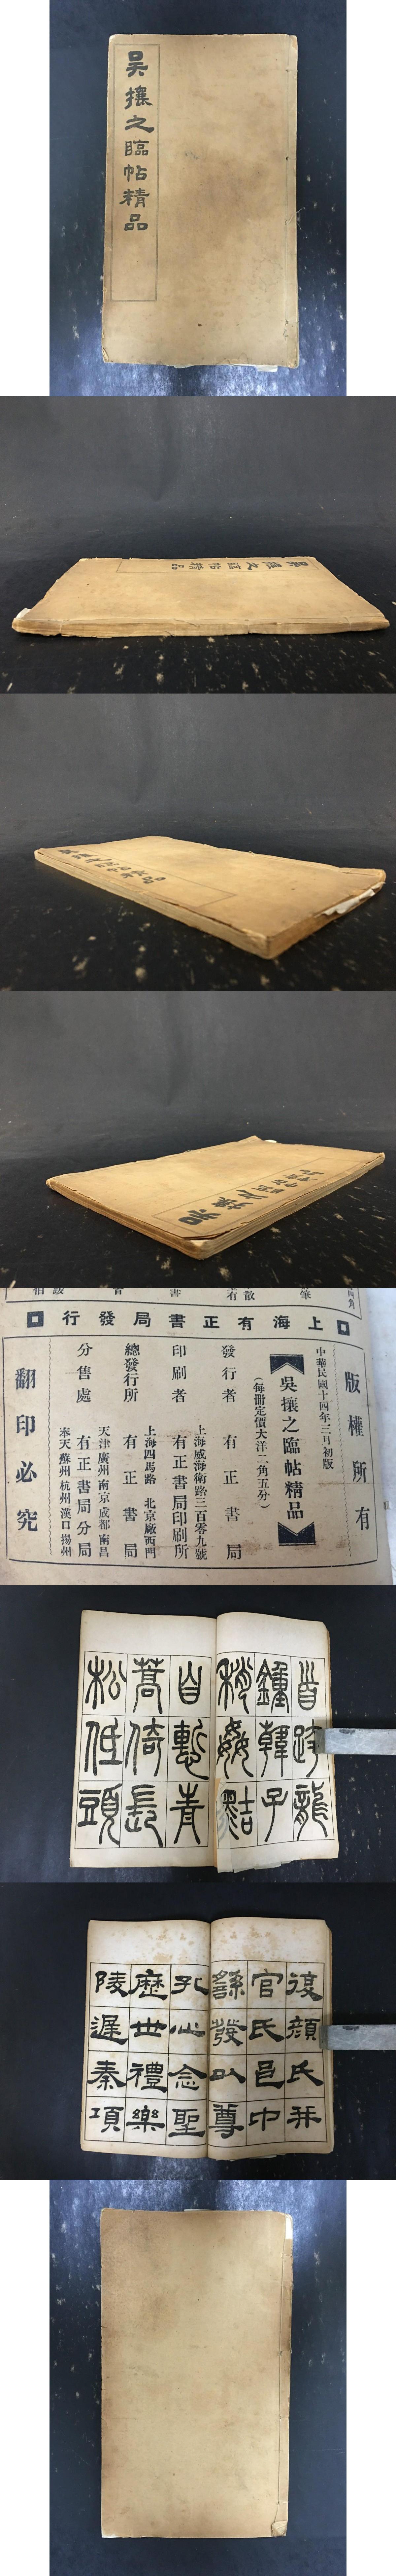 吳攘之臨帖精品
上海有正書局發行
版權所有
中華民國十四年三月初版
吳攘之臨帖精品
(每冊定價大洋二角五分)
發行者 有正書局
上海威海衛路三百零九號
印刷者 有正書局印刷所
上海四馬路 北京廠西門
總發行所 有正書局
天津 廣州 南京 成都 南昌
分售處 有正書局分局
奉天 蘇州 杭州 漢口 揚州
翻印必究
鐘韓子
自慙青
蒿倚長
松低頭
復顏氏并
官氏邑中
繇發以尊
孔心念聖
歷世禮樂
陵遲秦項